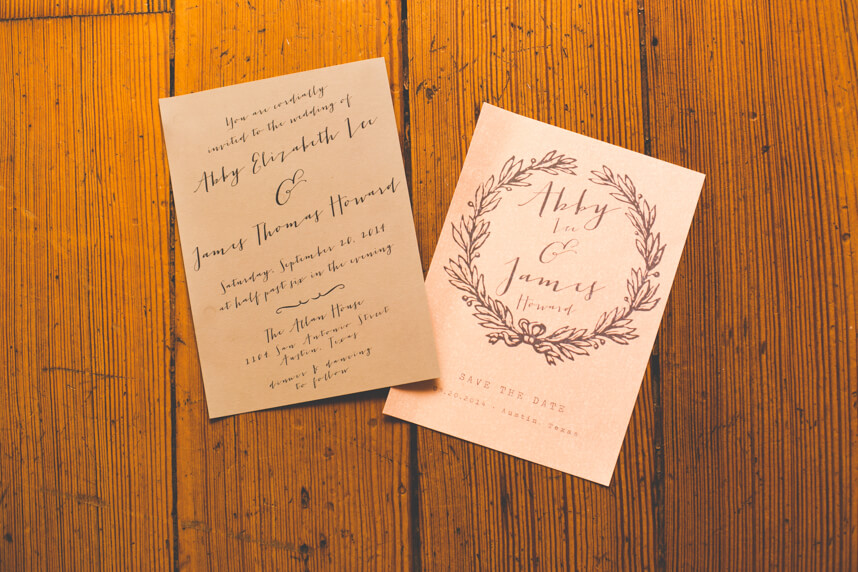 You are cordially
invited to the wedding of
Abby Elizabeth Lee
&
James Thomas Howard
Saturday, September 20, 2014
at half past six in the evening
The Allan House
1104 San Antonio Street
Austin, Texas
dinner & dancing
to follow
Abby
Lee
&
James
Howard
SAVE THE DATE
.20.2014 - Austin, Texas